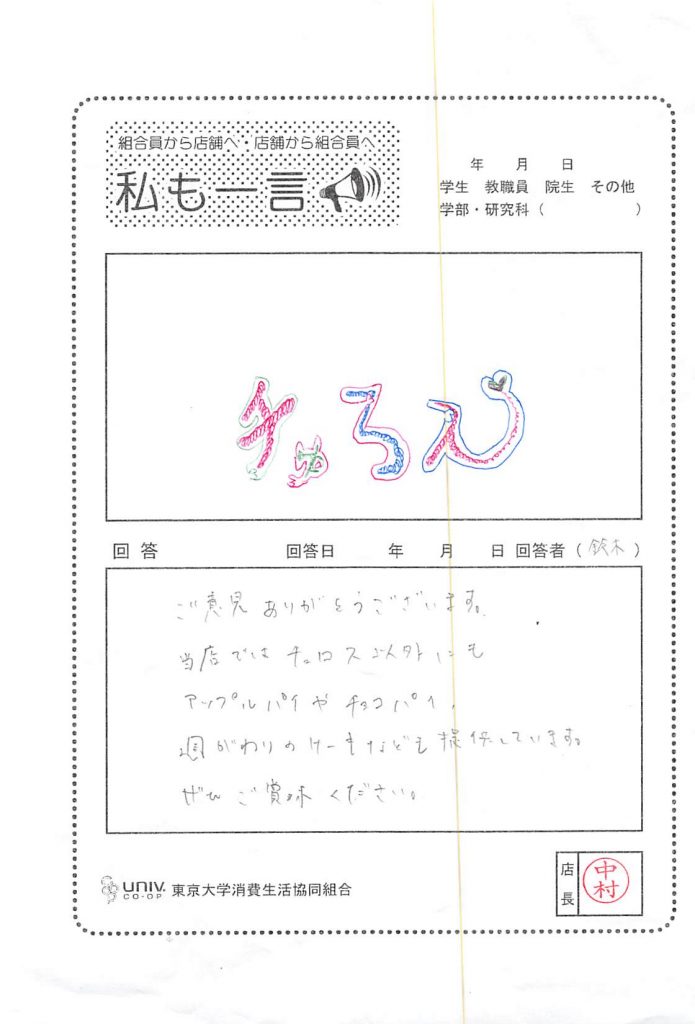 組合員から店舗へ・店舗から組合員へ
私も一言
年 月 日
学生 教職員 院生 その他
学部・研究科（ ）
チゅろス
回答 回答日 年 月 日 回答者（鈴木）
ご意見ありがとうございます。
当店ではチュロス以外にも
アップルパイやチョコパイ、
週がわりのケーキなども提供しています。
ぜひご賞味ください。
UNIV. CO-OP 東京大学消費生活協同組合
店長 中村